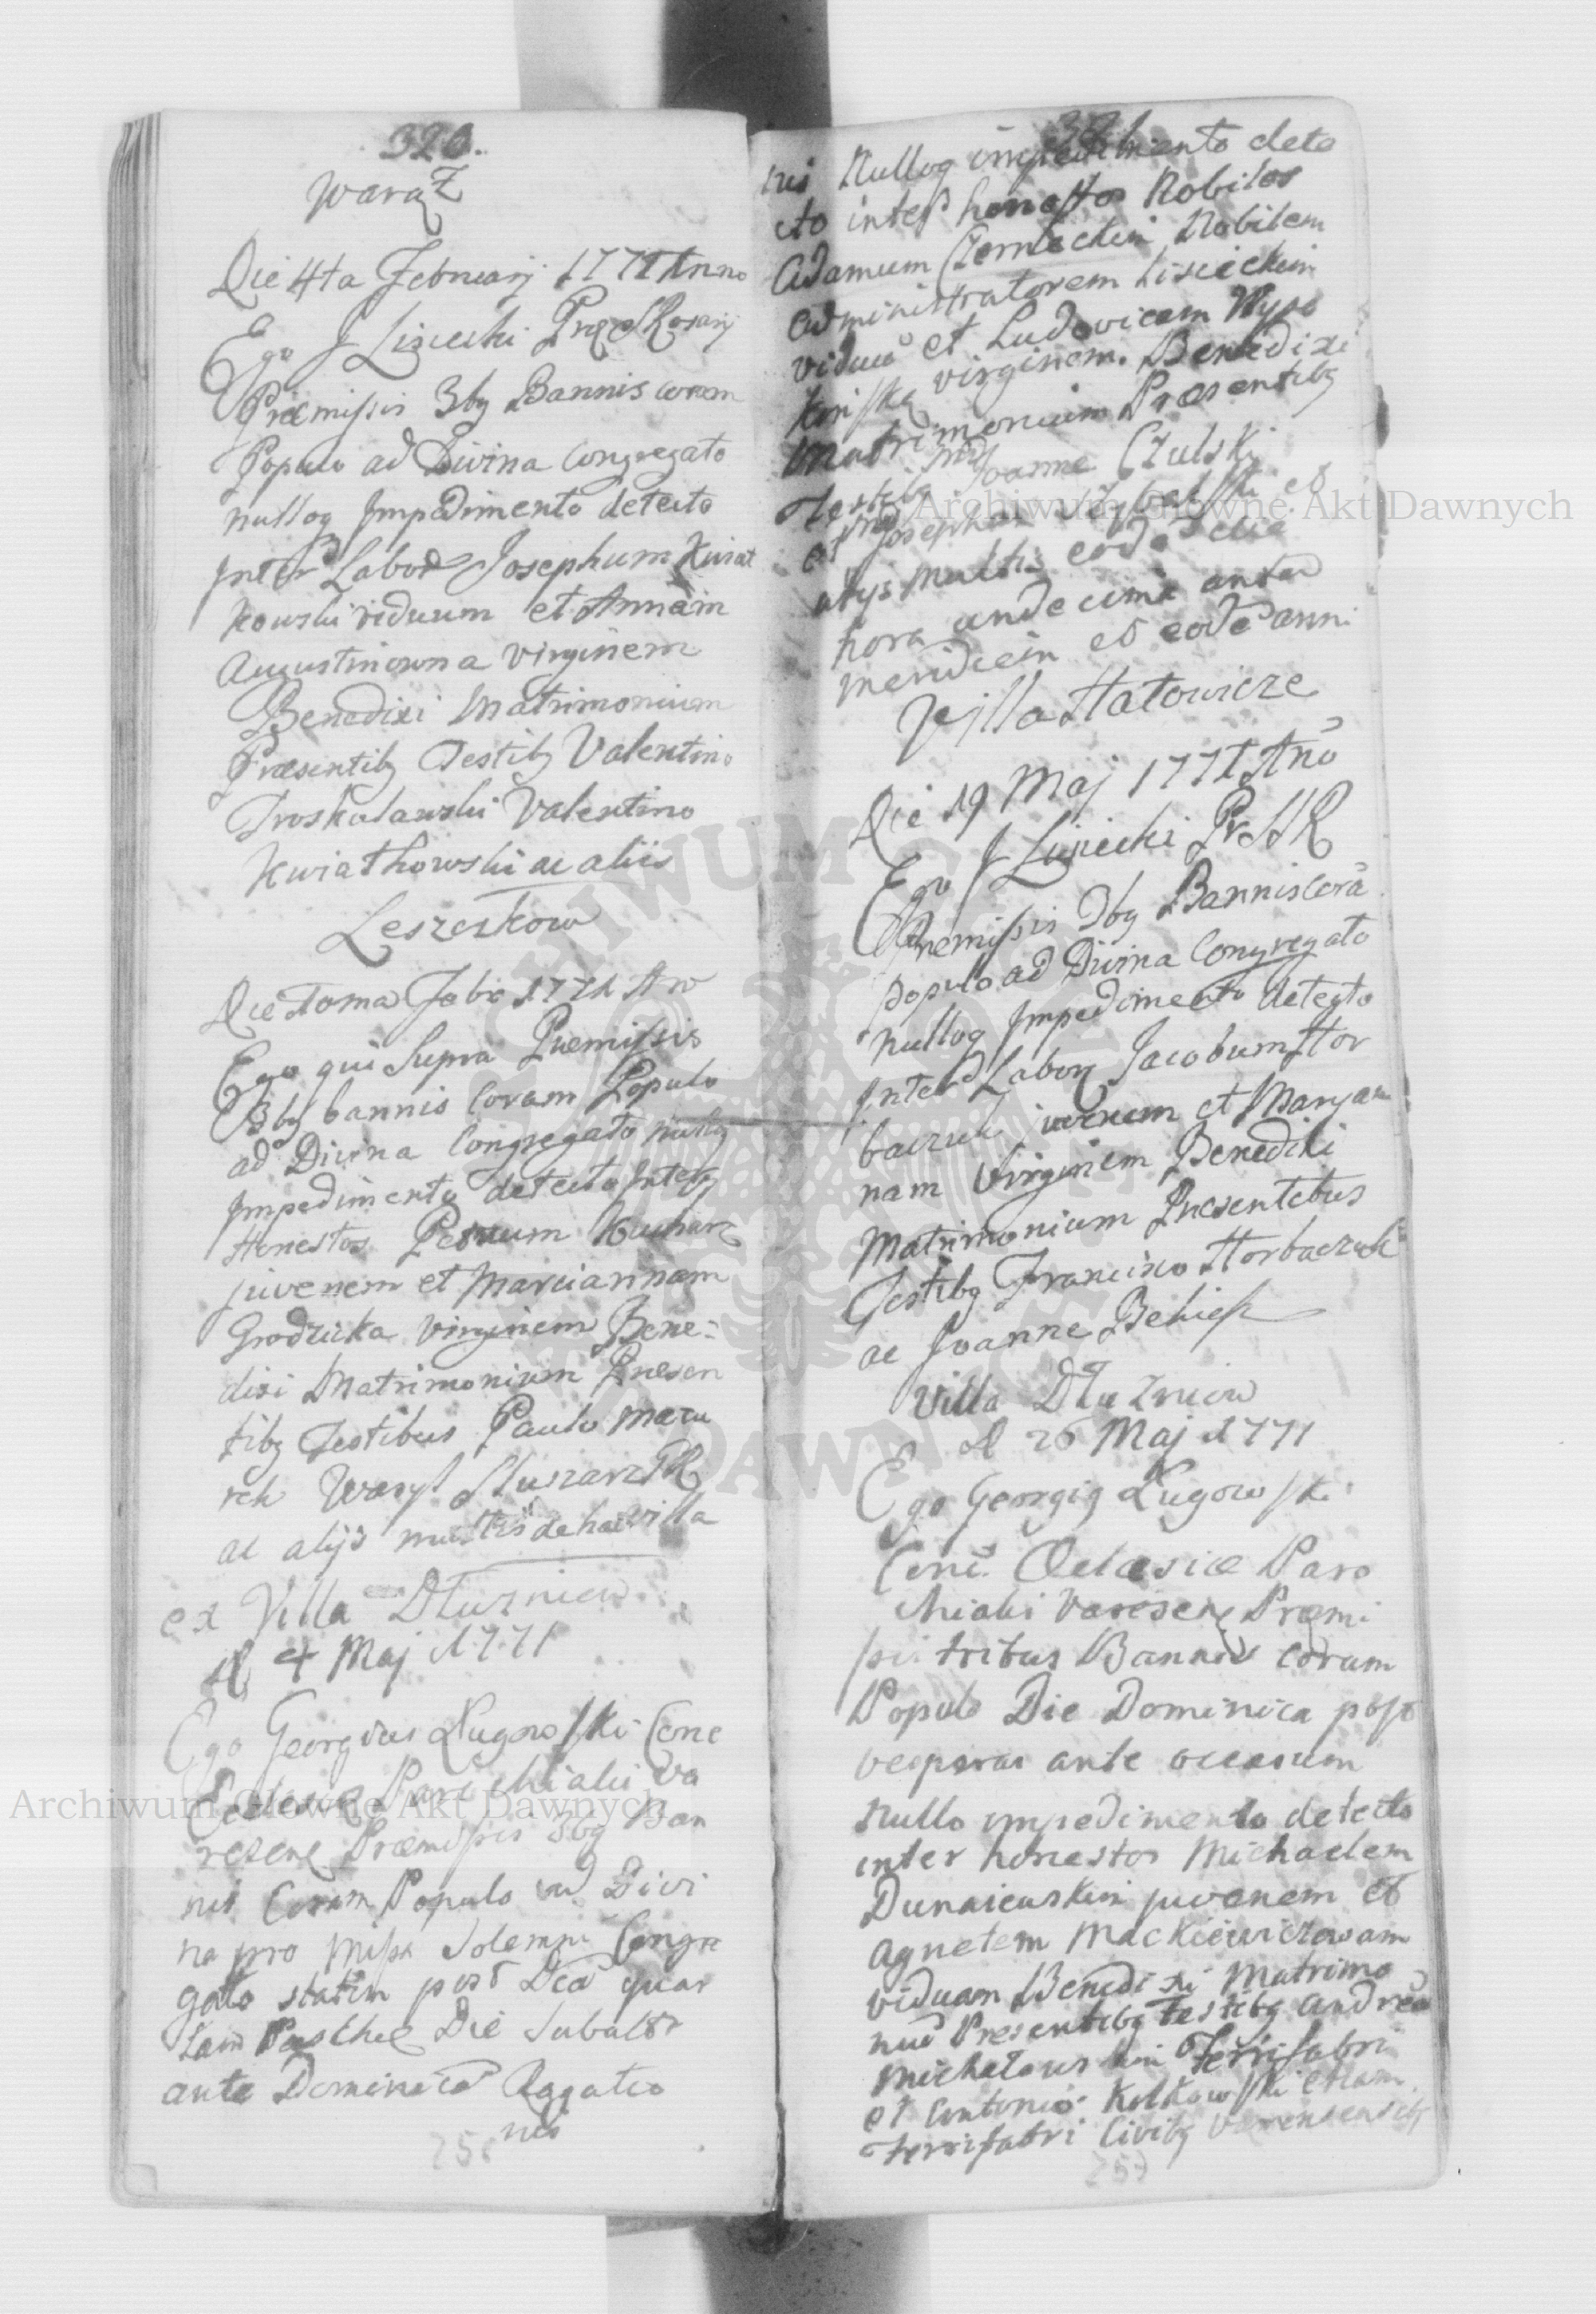 320.
Waraz
Die 4ta Februarij 1771 Anno
Ego J Lisiecki Præs Rosarij
Præmissis 3bg Bannis coram
Populo ad Divina Congregato
nullog Impedimento detecto
Inter Labor Josephum Kwiat
kowski viduum et Annam
Augustinowna Virginem
Benedixi Matrimonium
Præsentibg Testibg Valentino
Troskolawski Valentino
Kwiatkowski ac aliis
Leszczkow
Die 10ma Febr 1771 An
Ego qui Supra Præmissis
3bg bannis Coram Populo
ad Divina Congregato nullog
Impedimento detecto Inter
Honestos Petrum Kucharz
juvenem et Mariannam
Grodzicka Virginem Bene=
dixi Matrimonium Præsen
tibg Testibus Paulo
Wasyl
ac alijs multis de hac villa
ex Villa Dłuzniow
D 4 Maj 1771
Ego Georgius Ługowski Come
Eclesiæ Parochialis Va
recens Præmissis 3bg Ban
nis Coram Populo ad Divi
na pro Missa Solemni Congre
gato statim post quar
tam Paschæ Die Sabato
ante Dominica Rogatio
nis
256
nis Nullog impedimento dete
cto inter honestos Nobiles
Adamum Czerneckim Nobilem
administratorem Lisieckim
viduu et Ludovicam Wyso
kinska virginem. Benedixi
Matrimonium Præsentibg
Testibg Joanne Czulski
et Josepho et
alijs multis eode die
hora undecima ante
meridiem et eode anni
Villa Hatowicze
Die 19 Maj 1771 Ano
Ego J Lisiecki Pr SSR
Præmissis 3bg Bannis Cora
populo ad Divina Congregato
nullog Impedimento detecto
Inter Labor Jacobum Hor
baczuk juvenem et Maryan
nam Virginem Benedixi
Matrimonium Præsentibus
Testibg Francisco Horbaczuk
ac Joanne
Villa Dłuzniow
D 26 Maj 1771
Ego Georgig Ługowski
Come Eclesiæ Paro
chialis Varesens Præmi
ssi tribus Bannis coram
Populo Die Dominica post
vesperas ante occasum
Nullo impedimento detecto
inter honestos Michaelem
Dunaiewskim juvenem et
Agnetem Mackiewiczowam
viduam Benedixi Matrimo
niu Presentibg Testibg Andrea
Michalowskim Ferrifabri
et Antonio Kolkowski etiam
ferrifabri Civibg
257
Archiwum Główne Akt Dawnych
Archiwum Główne Akt Dawnych
ARCHIWUM GŁÓWNE AKT DAWNYCH